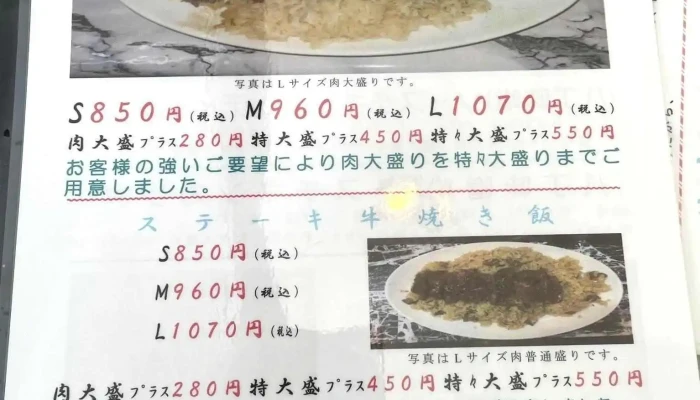 写真はLサイズ肉大盛りです。
S850円(税込) M960円(税込) L1070円(税込)
肉大盛プラス280円 特大盛プラス450円 特々大盛プラス550円
お客様の強いご要望により肉大盛りを特々大盛りまでご
用意しました。
ステーキ牛焼き飯
S850円(税込)
M960円(税込)
L1070円(税込)
写真はLサイズ肉普通盛りです。
肉大盛プラス280円 特大盛プラス450円 特々大盛プラス550円